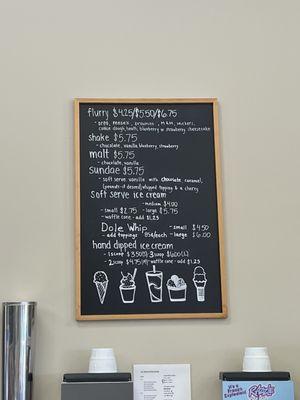 flurry $4.25/$5.50/$6.75
- oreo, reese's, brownies, M&M, snickers,
cookie dough, heath, blueberry or strawberry cheesecake
shake $5.75
- chocolate, vanilla, blueberry, strawberry
malt $5.75
- chocolate, vanilla
sundae $5.75
- soft serve vanilla with chocolate, caramel,
(peanuts-if desired) whipped topping & a cherry
soft serve ice cream
- medium $4.00
- small $2.75 - large $5.75
- waffle cone - add $1.23
Dole Whip - small $4.50
- add toppings 85¢/each - large $6.00
hand dipped ice cream
- 1 scoop $3.50(S) 3 scoop $6.00(L)
- 2 scoop $4.75(M) waffle cone - add $1.23